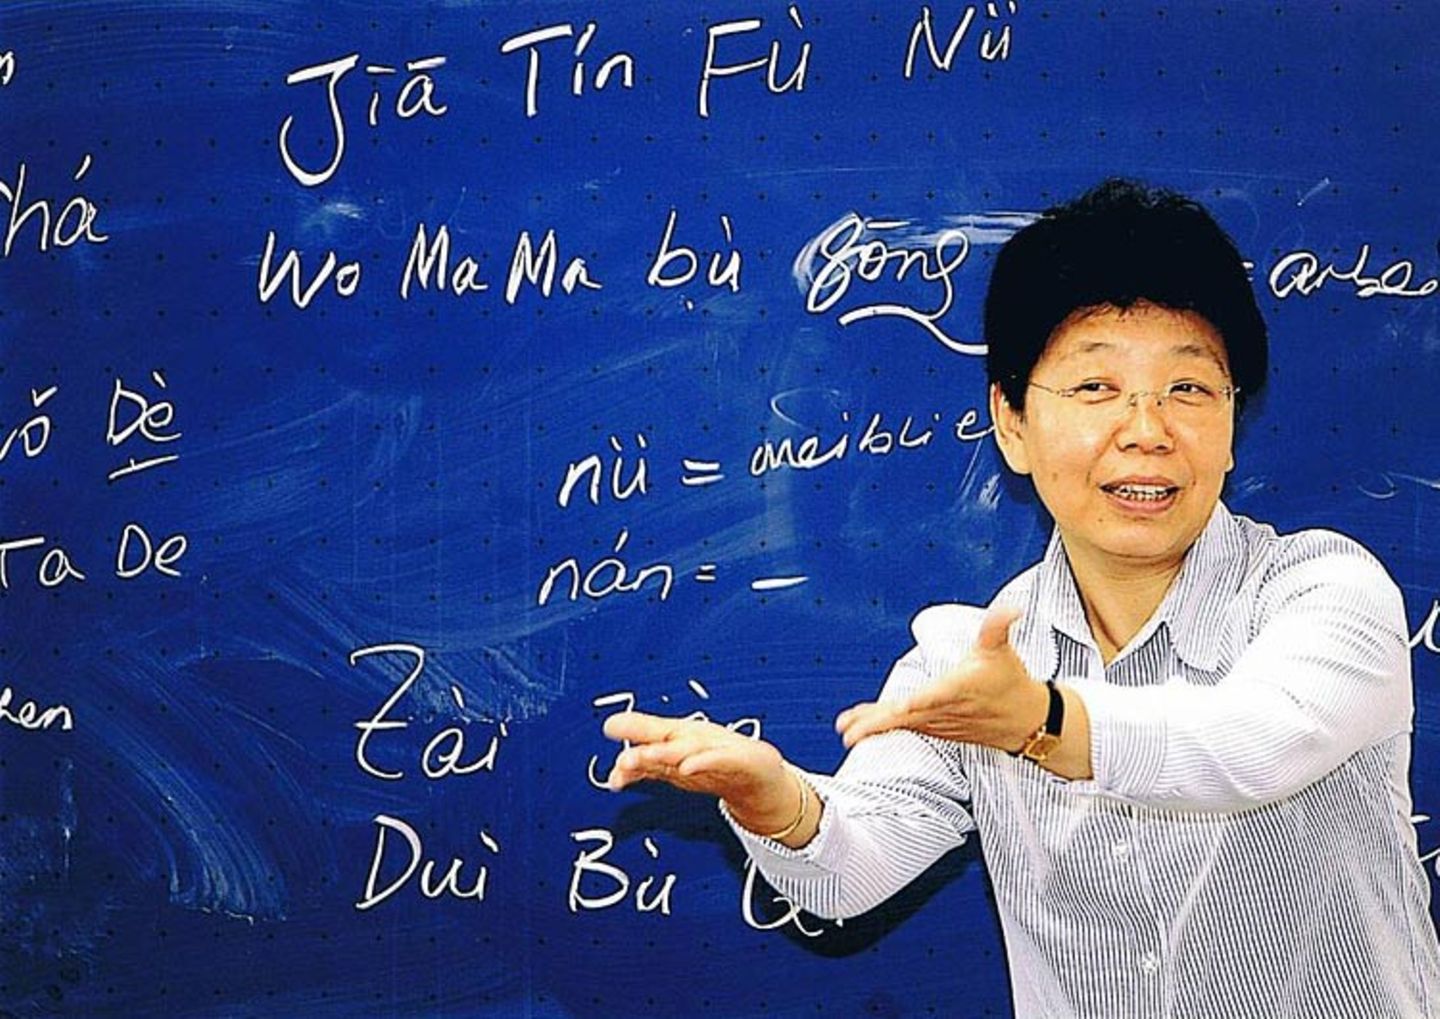 Jīā Tín Fù Nü
há
Wo Ma Ma bù gōng = arbe
Dè
nü = weiblich
Ta De
nán = -
Zài Jiàn
Duì Bù